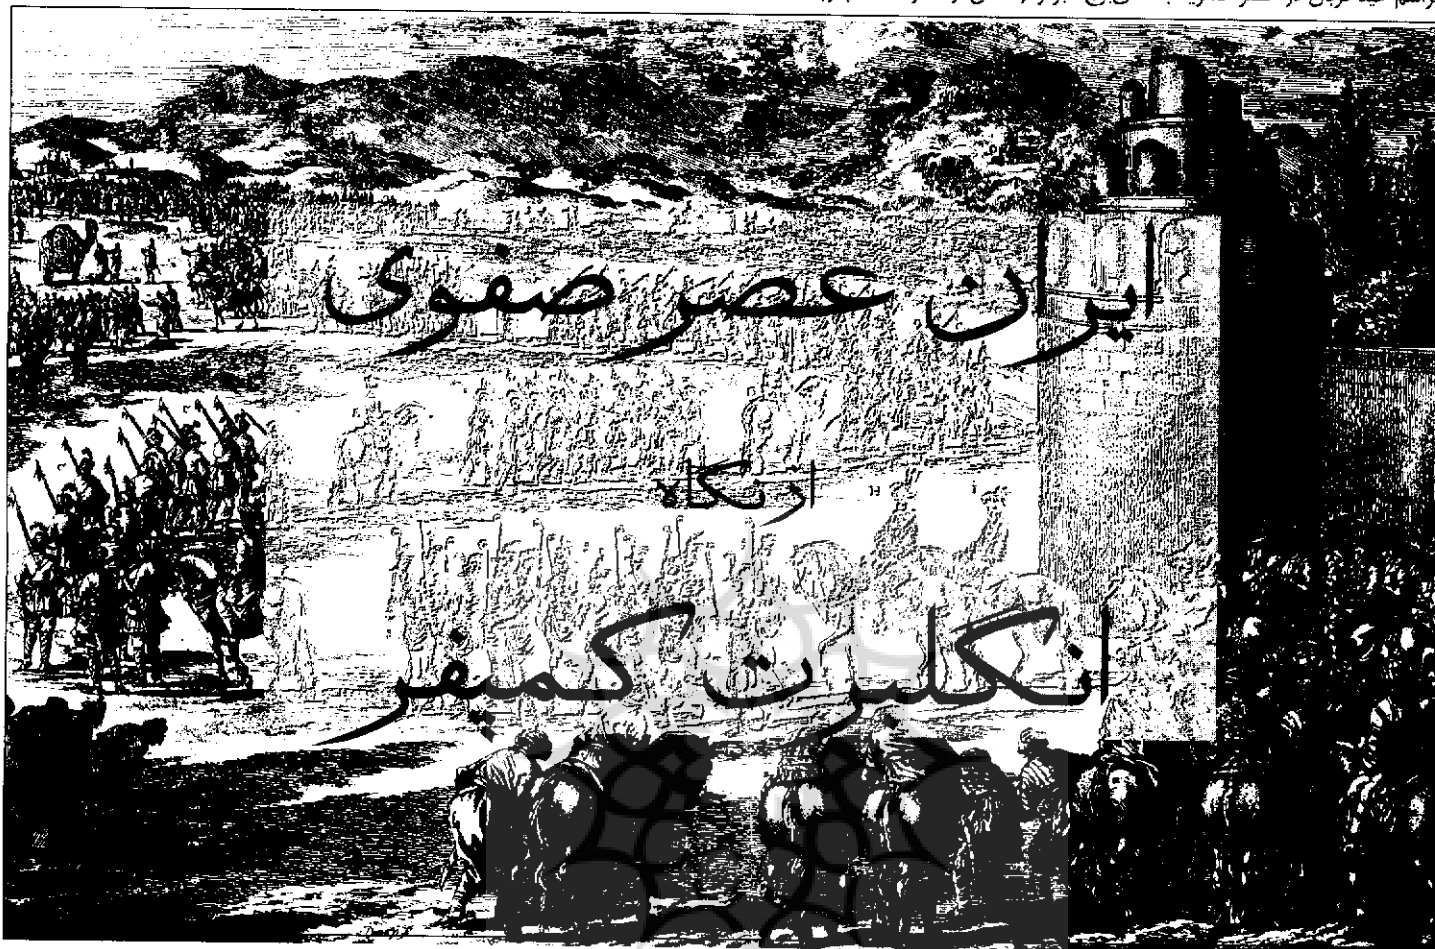 ایران عصر صفوی
از نگاه
انگلبرت کمپفر